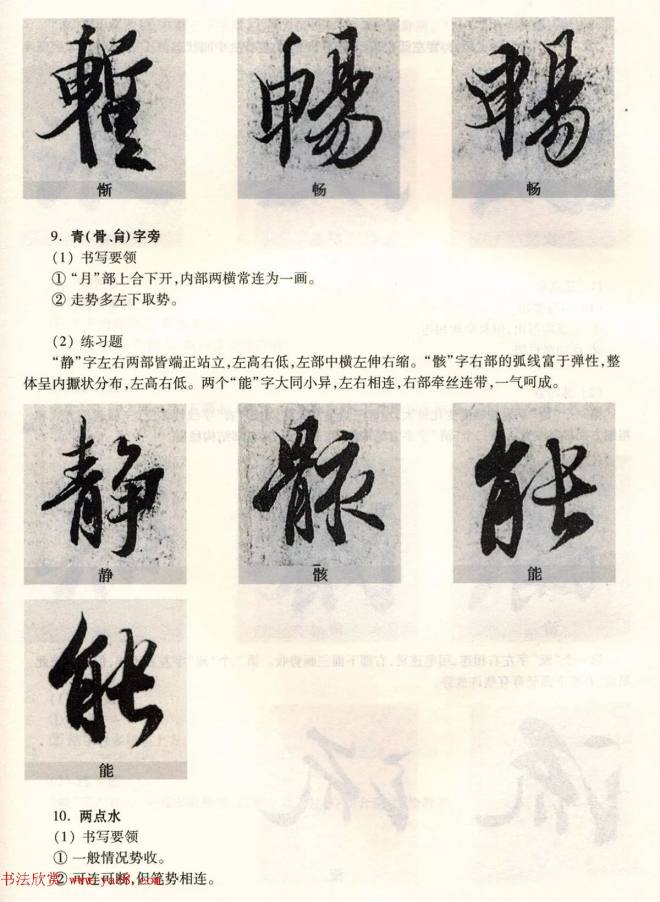 惭 畅 畅
9. 青(骨、㠯)字旁
(1) 书写要领
① “月”部上合下开,内部两横常连为一画。
② 走势多左下取势。
(2) 练习题
“静”字左右两部皆端正站立,左高右低,左部中横左伸右缩。“骸”字右部的弧线富于弹性,整
体呈内擫状分布,左高右低。两个“能”字大同小异,左右相连,右部牵丝连带,一气呵成。
静 骸 能
静 骸 能
能
能
10. 两点水
(1) 书写要领
① 一般情况势收。
② 可连可断,但笔势相连。
书法欣赏 www.yac8.com